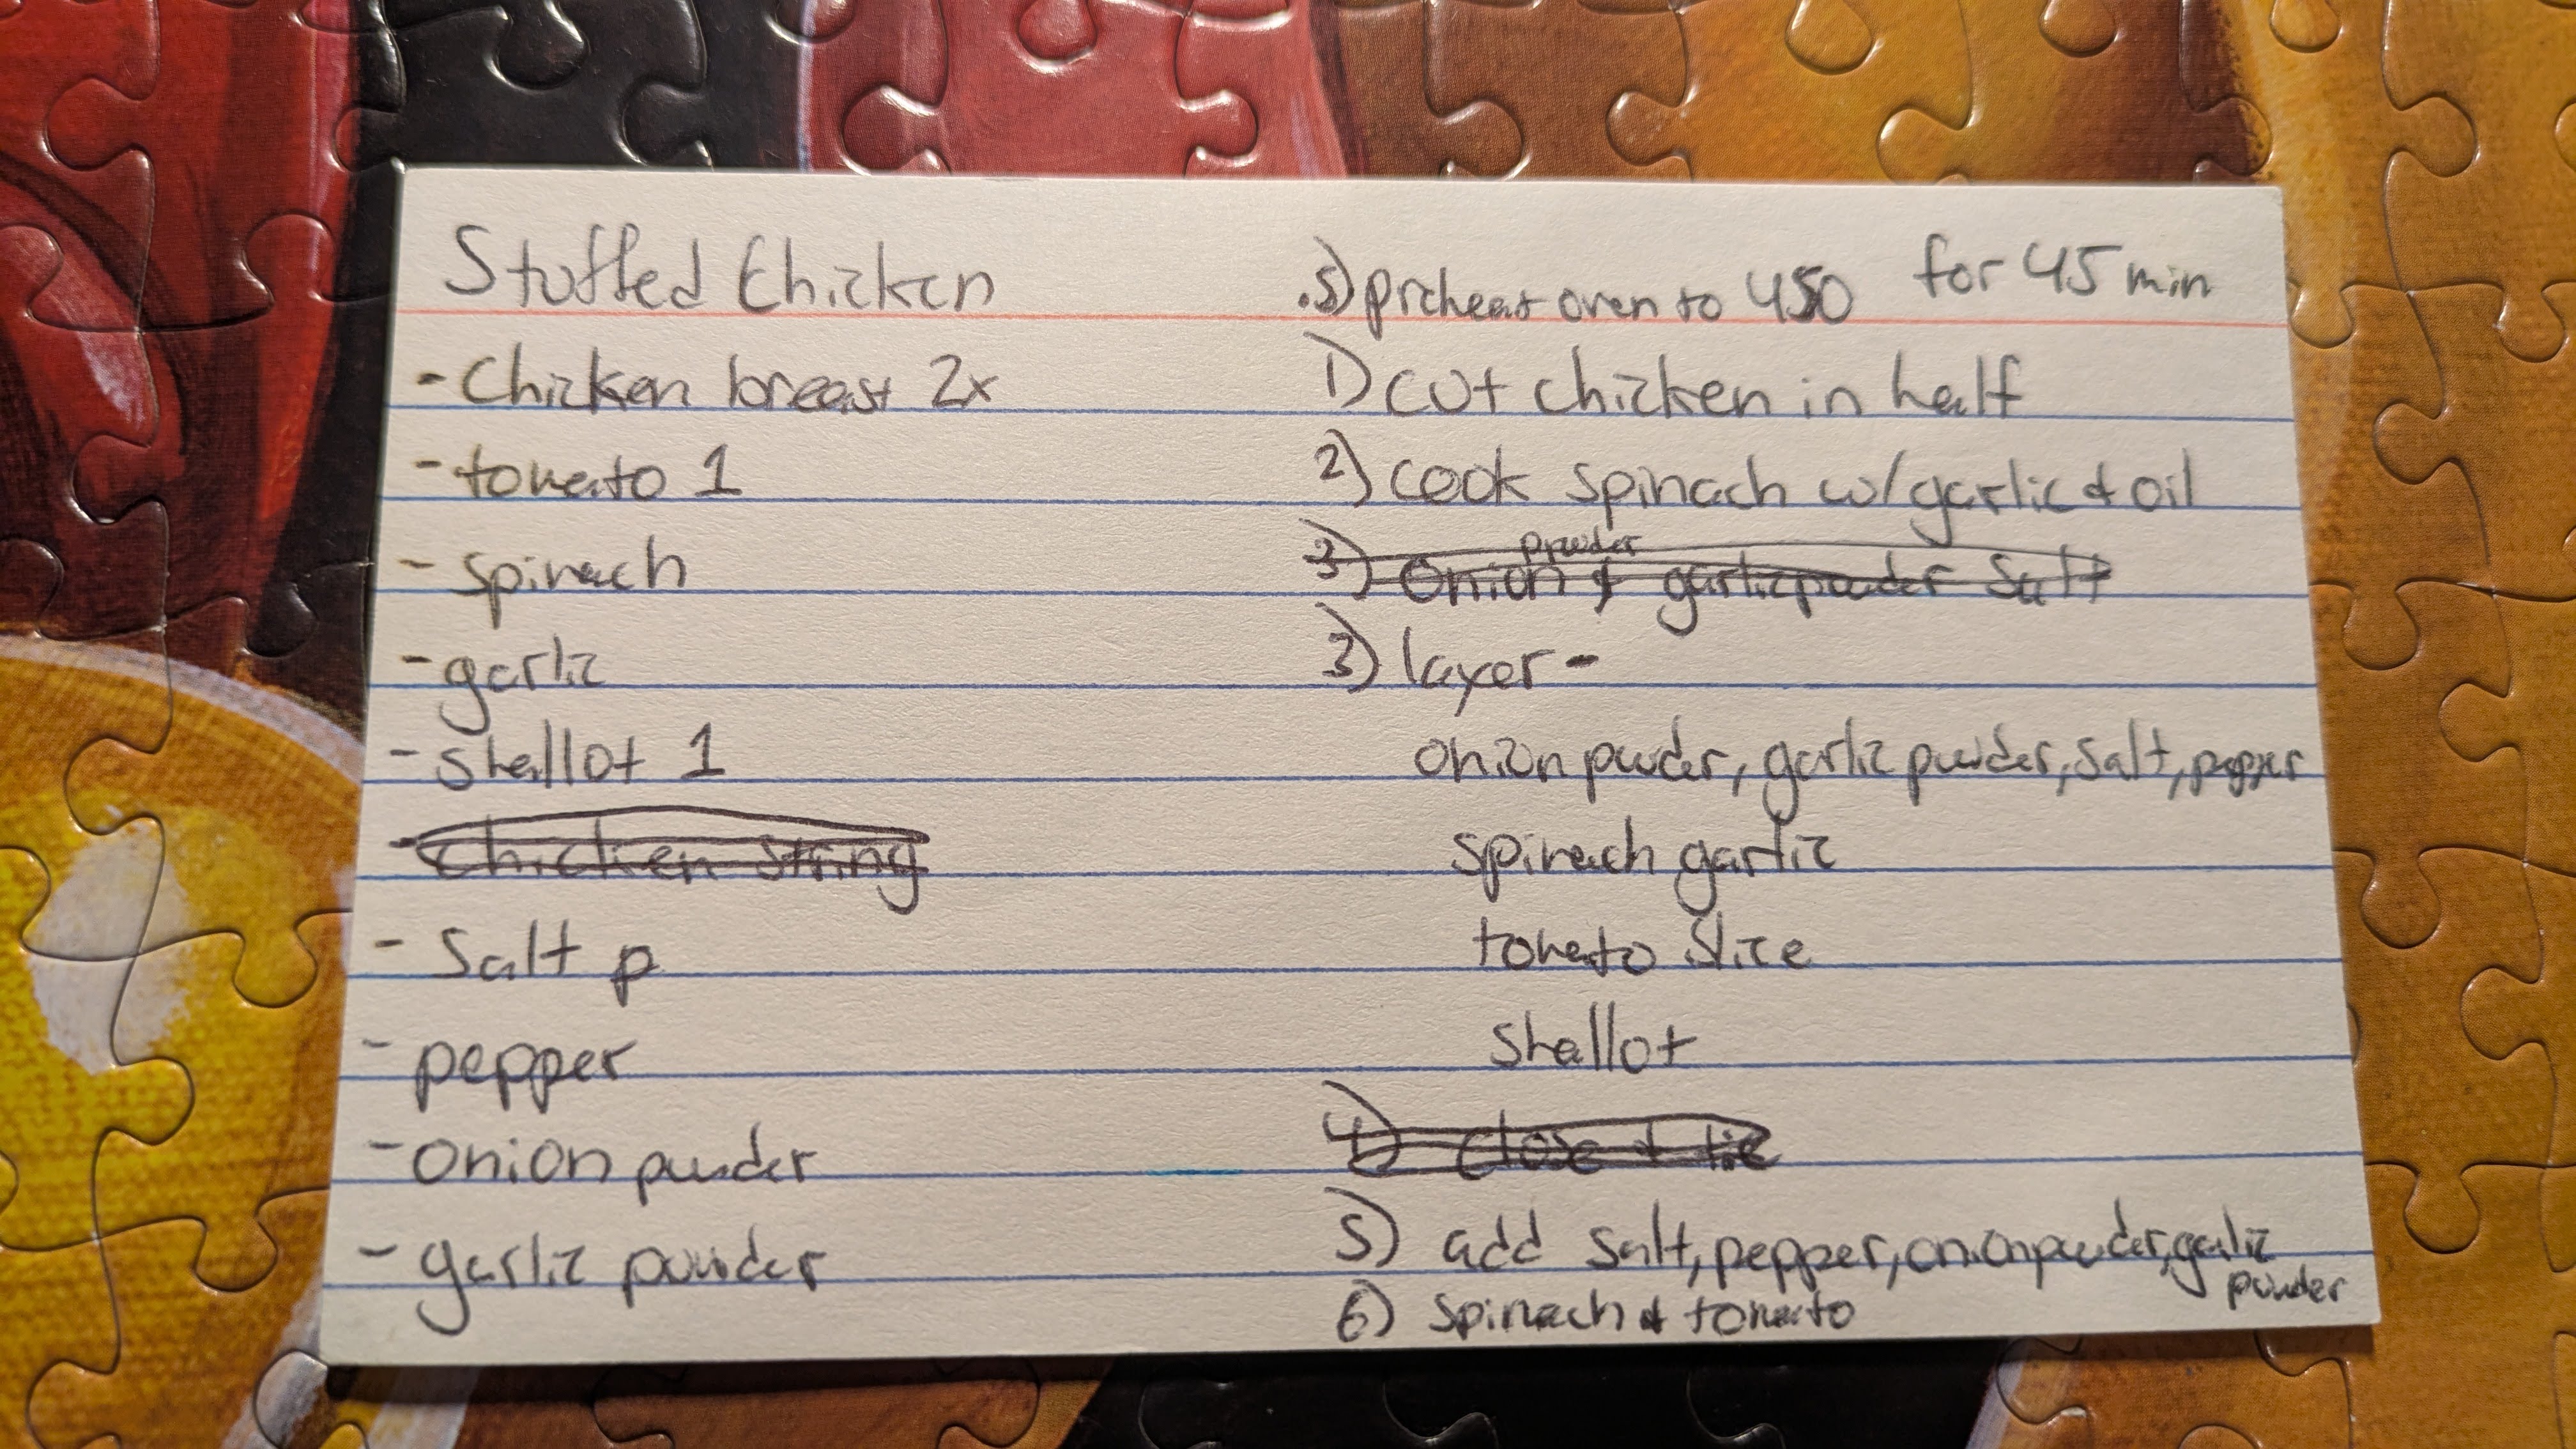 Stuffed Chicken
- Chicken breast 2x
- tomato 1
- spinach
- garlic
- shallot 1
- chicken string
- Salt p
- pepper
- onion powder
- garlic powder
.5) preheat oven to 450 for 45 min
1) cut chicken in half
2) cook spinach w/garlic & oil
powder
3) onion & garlic powder salt
3) layer -
onion powder, garlic powder, salt, pepper
spinach garlic
tomato slice
shallot
4) close & tie
5) add salt, pepper, onion powder, garlic
powder
6) spinach & tomato